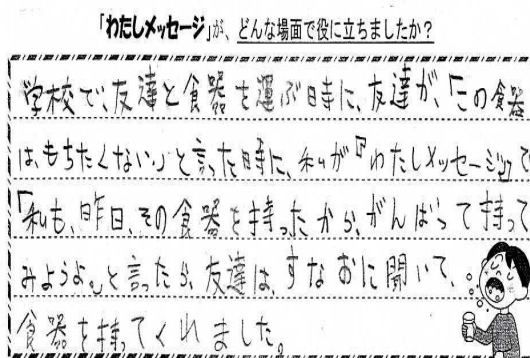 「わたしメッセージ」が、どんな場面で役に立ちましたか?
学校で、友達と食器を運ぶ時に、友達が、「この食器
は、もちたくない。」と言った時に、私が『わたしメッセージ』で
「私も、昨日、その食器を持ったから、がんばって持って
みようよ。」と言ったら、友達は、すなおに聞いて、
食器を持ってくれました。